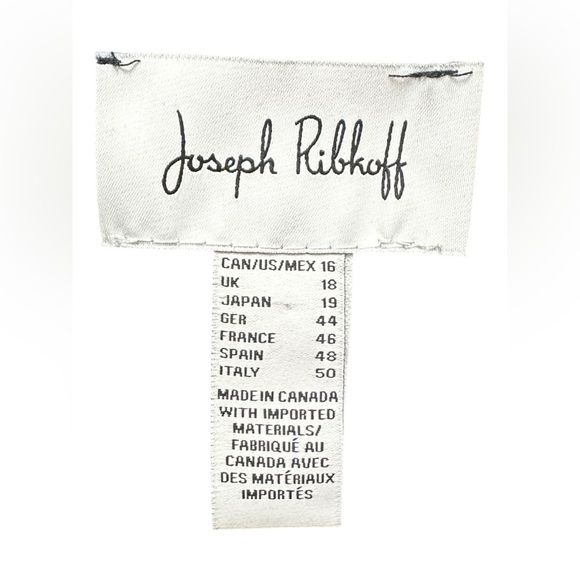 Joseph Ribkoff
CAN/US/MEX 16
UK 18
JAPAN 19
GER 44
FRANCE 46
SPAIN 48
ITALY 50
MADE IN CANADA
WITH IMPORTED
MATERIALS/
FABRIQUÉ AU
CANADA AVEC
DES MATÉRIAUX
IMPORTÉS